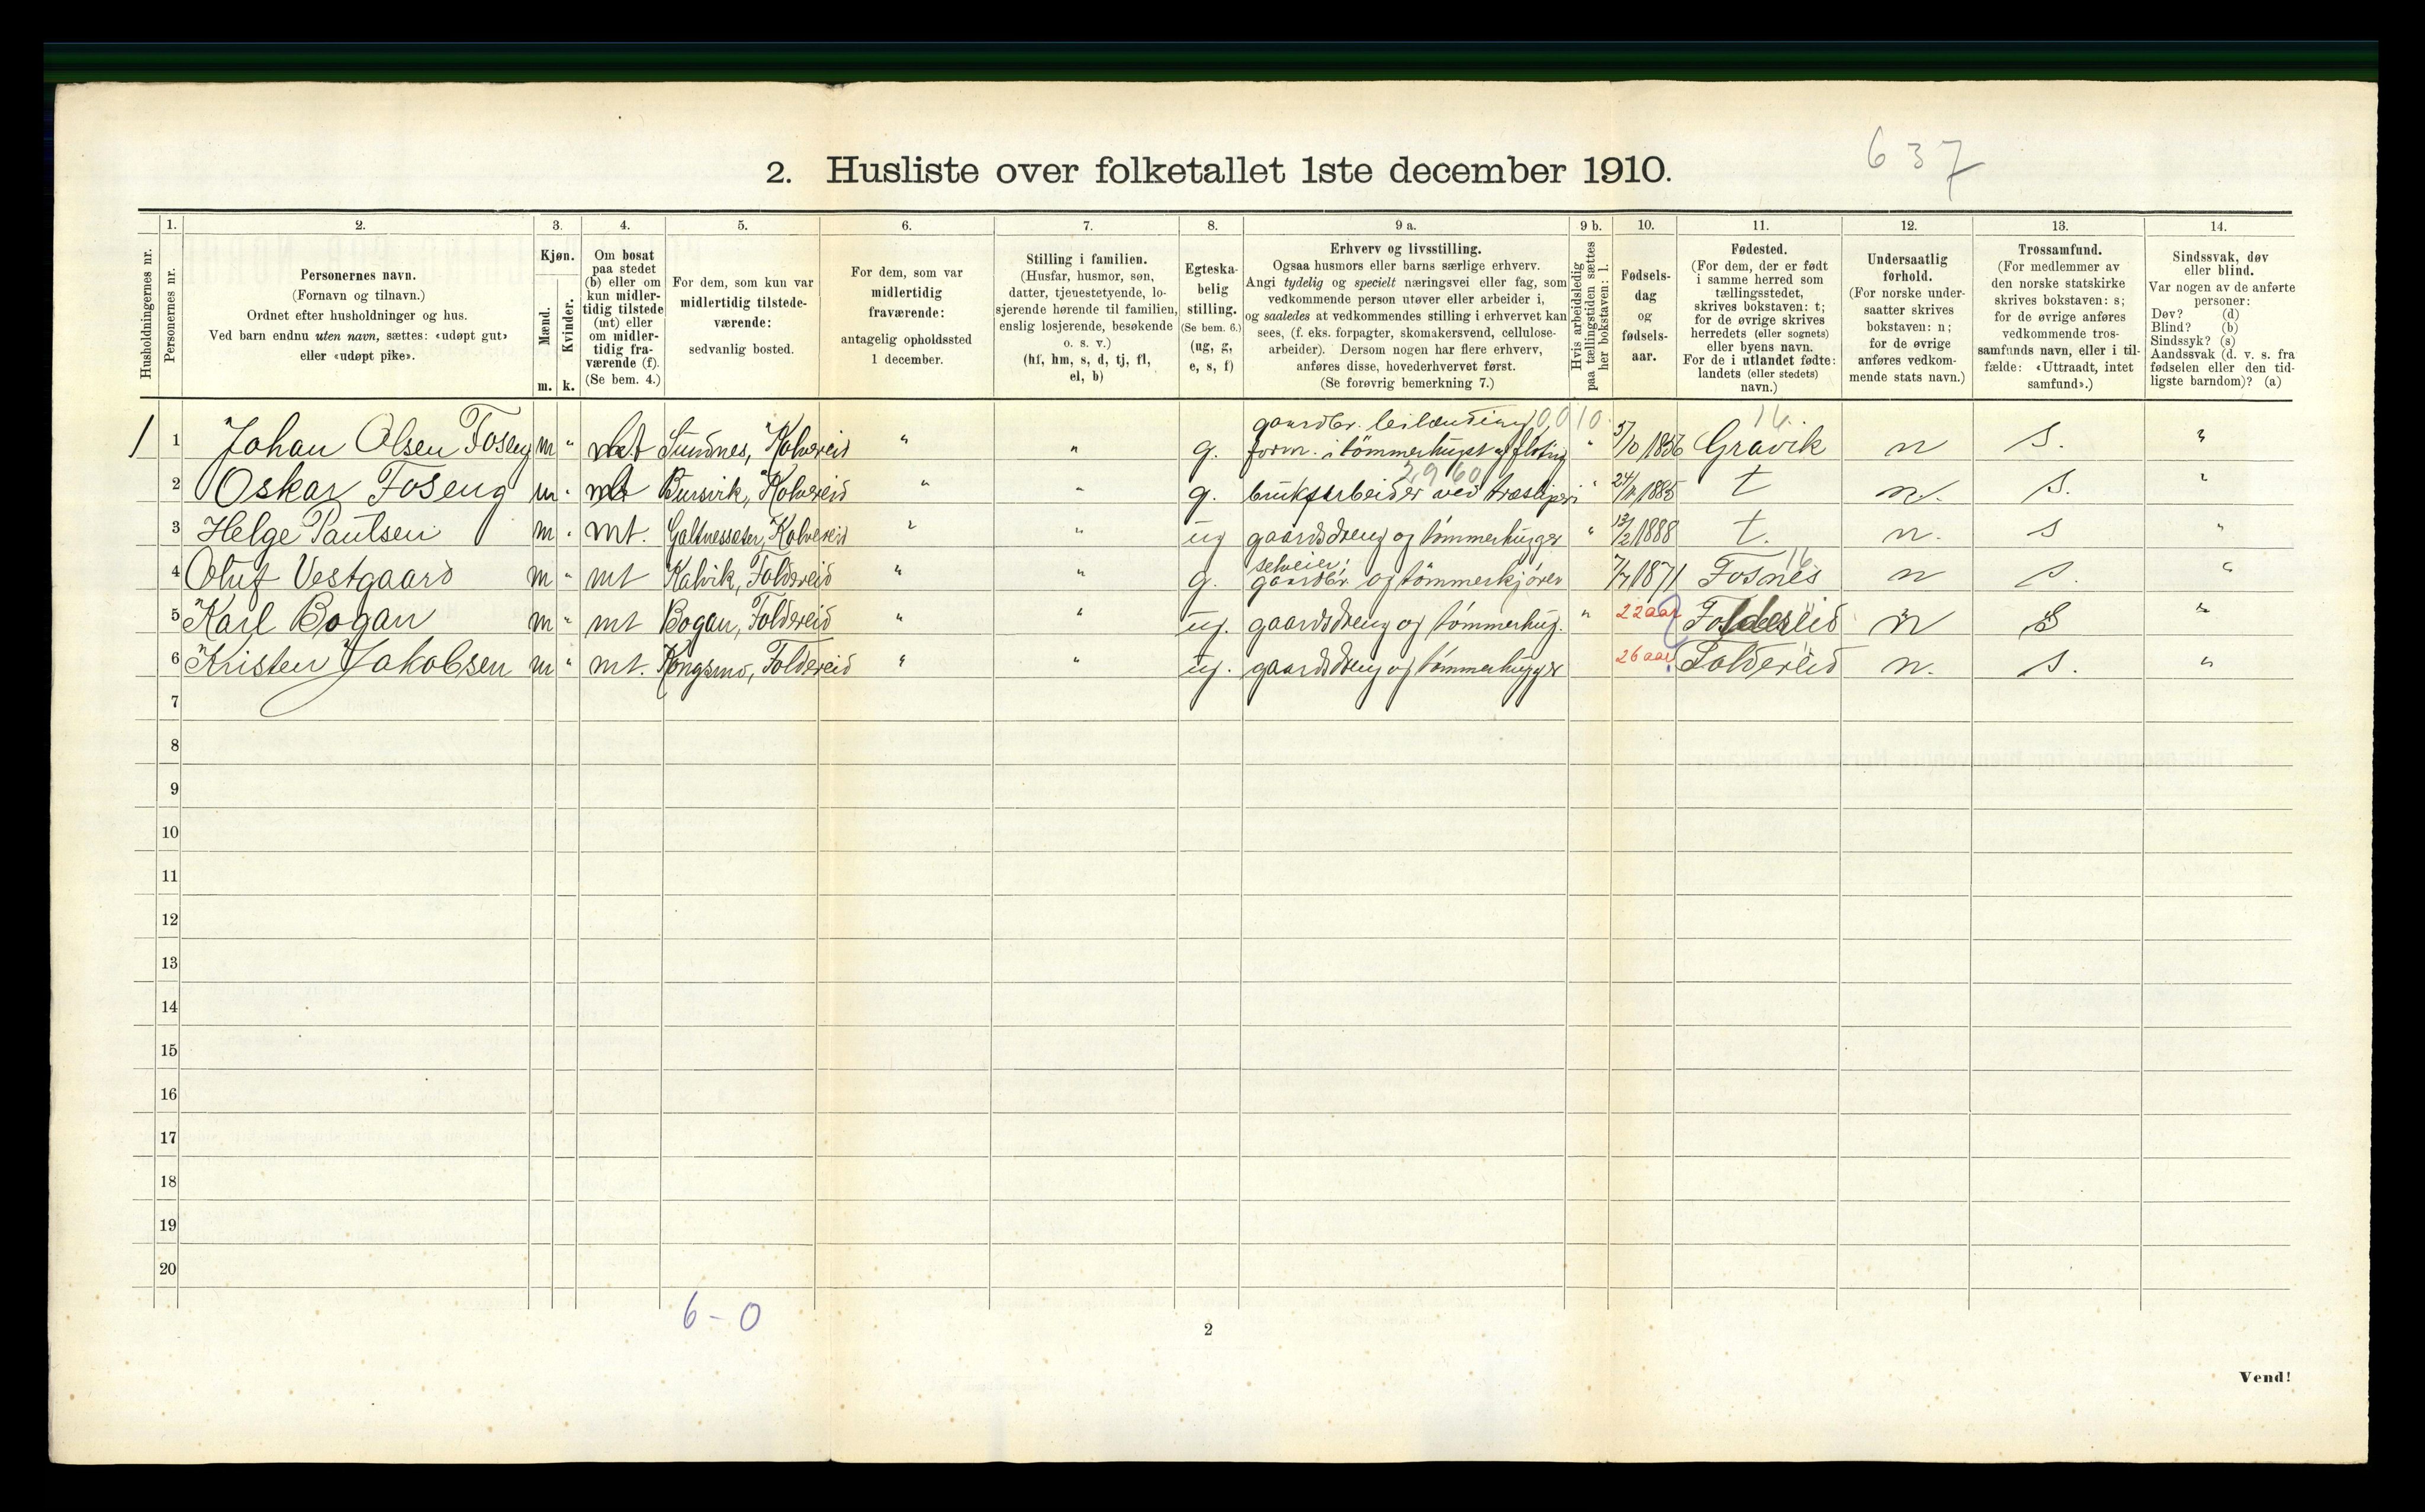 637
2. Husliste over folketallet 1ste december 1910.
Husholdningernes nr.
1.
Personernes nr.
2.
Personernes navn.
(Fornavn og tilnavn.)
Ordnet efter husholdninger og hus.
Ved barn endnu uten navn, sættes: «udøpt gut»
eller «udøpt pike».
3.
Kjøn.
Mænd.
Kvinder.
m. k.
4.
Om bosat
paa stedet
(b) eller om
kun midler-
tidig tilstede
(mt) eller
om midler-
tidig fra-
værende (f).
(Se bem. 4.)
5.
For dem, som kun var
midlertidig tilstede-
værende:
sedvanlig bosted.
6.
For dem, som var
midlertidig
fraværende:
antagelig opholdssted
1 december.
7.
Stilling i familien.
(Husfar, husmor, søn,
datter, tjenestetyende, lo-
sjerende hørende til familien,
enslig losjerende, besøkende
o. s. v.)
(hf, hm, s, d, tj, fl,
el, b)
8.
Egteska-
belig
stilling.
(Se bem. 6.)
(ug, g,
e, s, f)
9 a.
Erhverv og livsstilling.
Ogsaa husmors eller barns særlige erhverv.
Angi tydelig og specielt næringsvei eller fag, som
vedkommende person utøver eller arbeider i,
og saaledes at vedkommendes stilling i erhvervet kan
sees, (f. eks. forpagter, skomakersvend, cellulose-
arbeider). Dersom nogen har flere erhverv,
anføres disse, hovederhvervet først.
(Se forøvrig bemerkning 7.)
9 b.
Hvis arbeidsledig
paa tællingstiden sættes
her bokstaven: l.
10.
Fødsels-
dag
og
fødsels-
aar.
11.
Fødested.
(For dem, der er født
i samme herred som
tællingsstedet,
skrives bokstaven: t;
for de øvrige skrives
herredets (eller sognets)
eller byens navn.
For de i utlandet fødte:
landets (eller stedets)
navn.)
12.
Undersaatlig
forhold.
(For norske under-
saatter skrives
bokstaven: n;
for de øvrige
anføres vedkom-
mende stats navn.)
13.
Trossamfund.
(For medlemmer av
den norske statskirke
skrives bokstaven: s;
for de øvrige anføres
vedkommende tros-
samfunds navn, eller i til-
fælde: «Uttraadt, intet
samfund».)
14.
Sindssvak, døv
eller blind.
Var nogen av de anførte
personer:
Døv? (d)
Blind? (b)
Sindssyk? (s)
Aandssvak (d. v. s. fra
fødselen eller den tid-
ligste barndom)? (a)
gaardbr. leilænding 16
1 1 Johan Olsen Foseng m " Sundnes, Kolvereid " " g. form. i tömmerhugst og flotng " 1856 Gravik n s. "
2960
2 Oskar Foseng m " Kolvereid " " g. bruksarbeider ved træsliperi " 24/11 1885 t n. s. "
3 Helge Paulsen m " mt. Galtnesseter, Kolvereid " " ug gaardsdreng og tömmerhugger " 1888 t. n. s "
selveier; 16
4 Oluf Vestgaard m " mt Kalvik, Foldereid " " g. gaardbr. og tömmerkjörer 7/7 1871 Fosnes n s. "
5 Karl Bogan m " mt Bogan, Foldereid " " ug. gaardsdreng og tömmerhug. " 22 aar Foldereid n S "
6 Kristen Jakobsen m " mt. Kongsmo, Foldereid " " ug. gaardsdreng og tömmerhugger 26 aar Foldereid n. s. "
7
8
9
10
11
12
13
14
15
16
17
18
19
20
6 - 0
2
Vend!